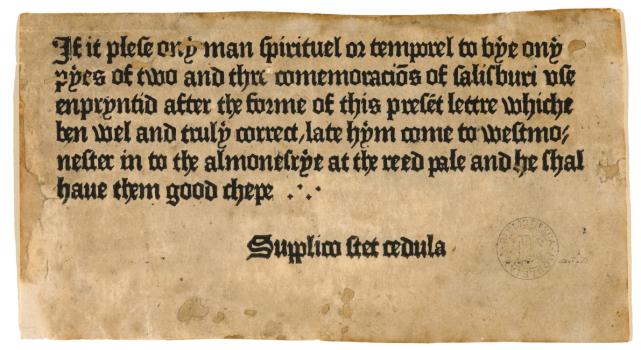 If it plese ony man spirituel or temporel to bye ony
pyes of two and thre comemoraciõs of salisburi vse
enpryntid after the forme of this presẽt lettre whiche
ben wel and truly correct, late hym come to westmo-
nester in to the almonesrye at the reed pale and he shal
haue them good chepe .·.
Supplico stet cedula